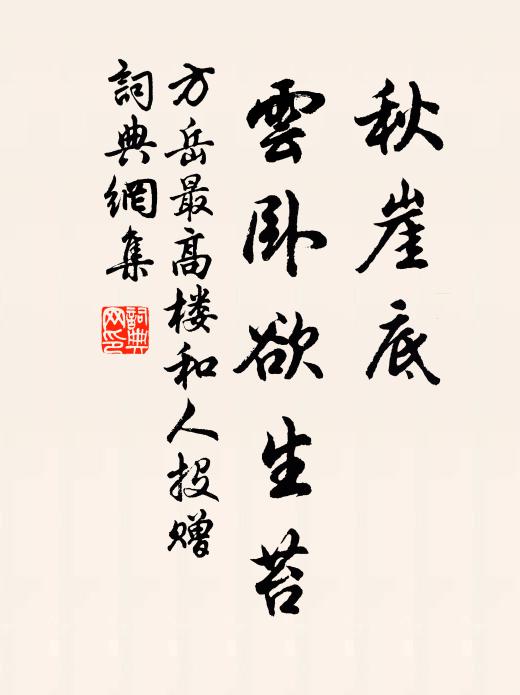 秋崖底
雲臥欲生苔
方岳最高楼和人投贈
詞典網集
詞典网印